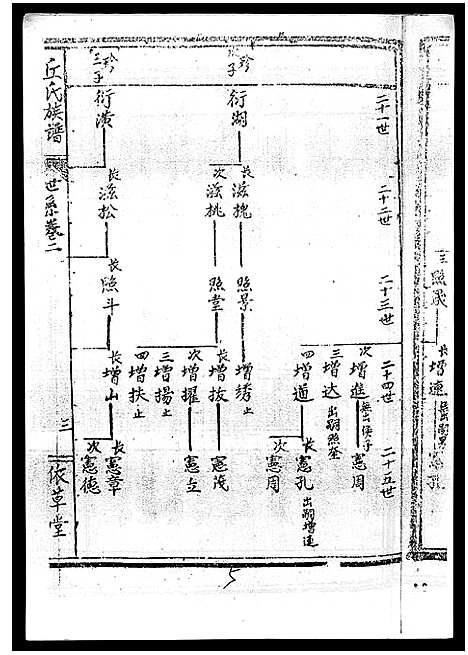 三 照晟
長 增連
憲孔
二十一世
二十二世
二十三世
二十四世
二十五世
次 增進 無出侄子
憲周
三 增达 出嗣照荃
四 增道
長 憲孔 出嗣增連
次 憲周
珍 次子
衍湖
長 滋槐
照景
增绣 止
次 滋桃
照堂
長 增拔
憲茂
次 增擢
憲立
三 增揚 止
四 增扶 止
珍 三子
衍潢
長 滋松
長 照斗
長 增山
長 憲章
次 憲德
丘氏族譜
世系卷二
三
依草堂
5